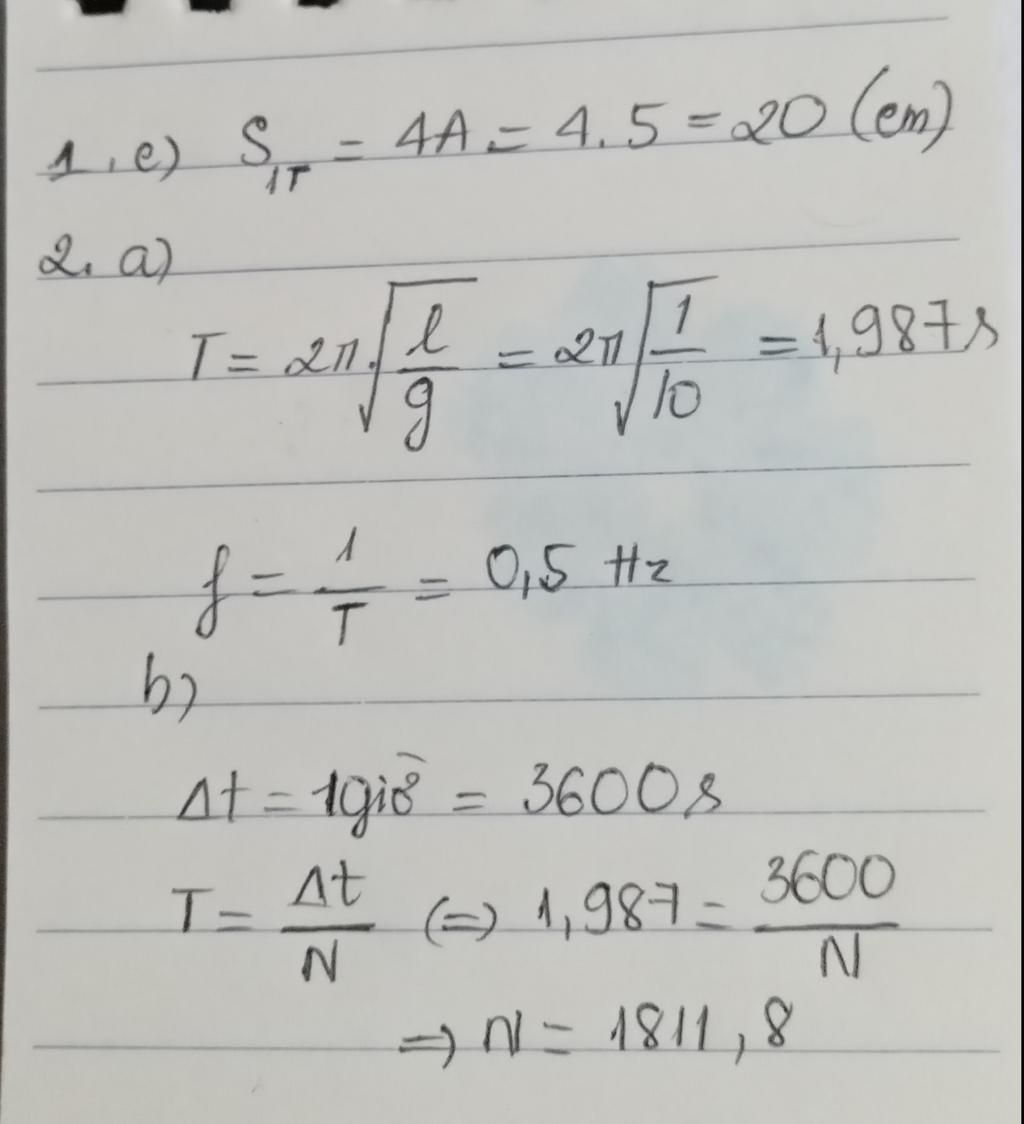 1. e) S₁T = 4A = 4.5 = 20 (cm)
2. a)
T = 2π√(l/g) = 2π√(1/10) = 1,987s
f = 1/T = 0,5 Hz
b)
Δt = 1giờ = 3600s
T = Δt/N (=) 1,987 = 3600/N
=) N = 1811,8